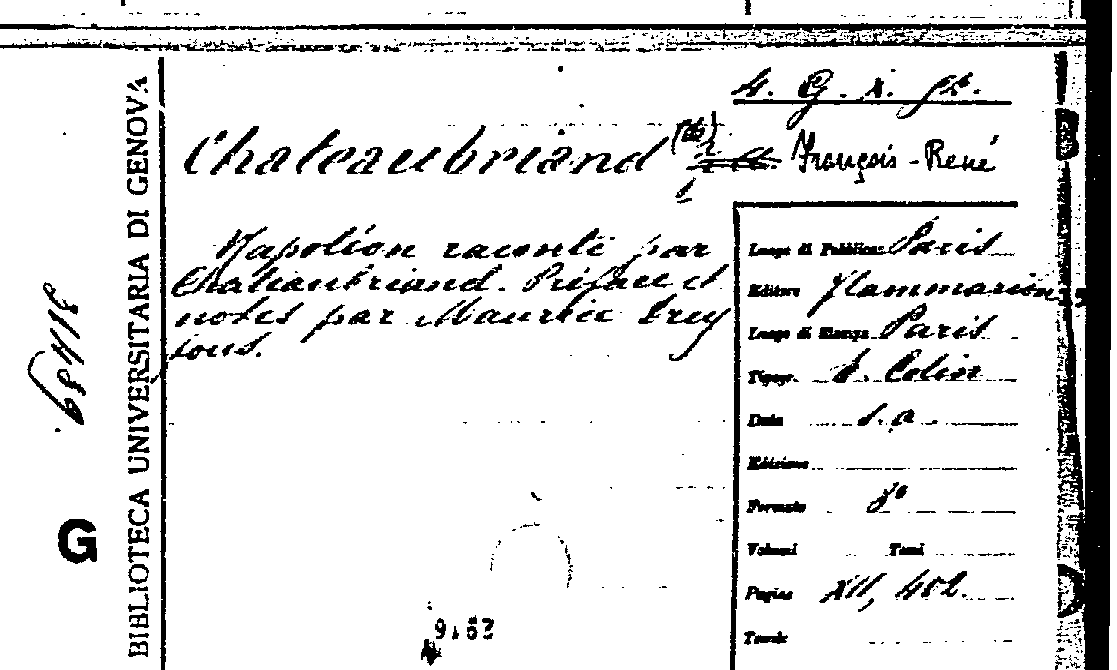 4. G. I.
Chateaubriand (de) François-René
Napoléon raconté par
Chateaubriand. Préface et
notes par Maurice Drey
fous.
Luogo di Pubblicaz. Paris
Editore Flammarion
Luogo di Stampa Paris
Tipogr. Colin
Data s. a.
Edizione
Formato 8°
Volumi Tomi
Pagine XII, 402
Tavole
BIBLIOTECA UNIVERSITARIA DI GENOVA
G